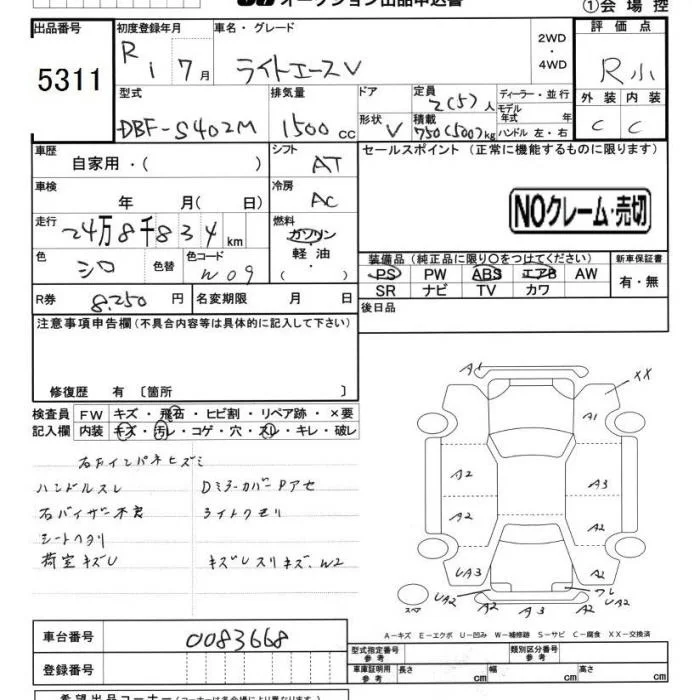 オークション出品申込書
①会場控
出品番号 5311
初度登録年月 R 1 7月
車名・グレード ライトエースV
2WD ・ 4WD
評価点 R小
型式 DBF-S402M
排気量 1500 cc
ドア 形状 V
定員 2(5)人
積載 750(500)kg
ディーラー・並行
モデル年式 年
ハンドル 左・右
外装 C 内装 C
車歴 自家用・( )
シフト AT
セールスポイント (正常に機能するものに限ります)
車検 年 月( 日)
冷房 AC
NOクレーム・売切
走行 24万8千834km
燃料 ガソリン 軽油 ・( )
色 シロ 色替 色コード W09
装備品(純正品に限り○をつけてください)
PS PW ABS エアB AW
SR ナビ TV カワ
新車保証書 有・無
R券 8,250円
名変期限 月 日
後日品
注意事項申告欄(不具合内容等は具体的に記入して下さい)
修復歴 有 〔箇所 〕
検査員記入欄
FW キズ・飛石・ヒビ割・リペア跡・×要
内装 キズ・汚レ・コゲ・穴・スレ・キレ・破レ
右Fインパネヒズミ
ハンドルスレ DミラーカバーPアセ
右バイザー不良 ライトクモリ
シートヘタリ
荷室キズU キズUスリキズ、W2
A1 XX
A1
A2 A3
A2 A2
UA3 A2
UA2 A2 A3 A2
スペア
A-キズ E-エクボ U-凹み W-補修跡 S-サビ C-腐食 XX-交換済
車台番号 0083668
型式指定番号 参考
類別区分番号 参考
登録番号
車庫証明用 参考 長さ cm 幅 cm 高さ cm
希望出品コーナー